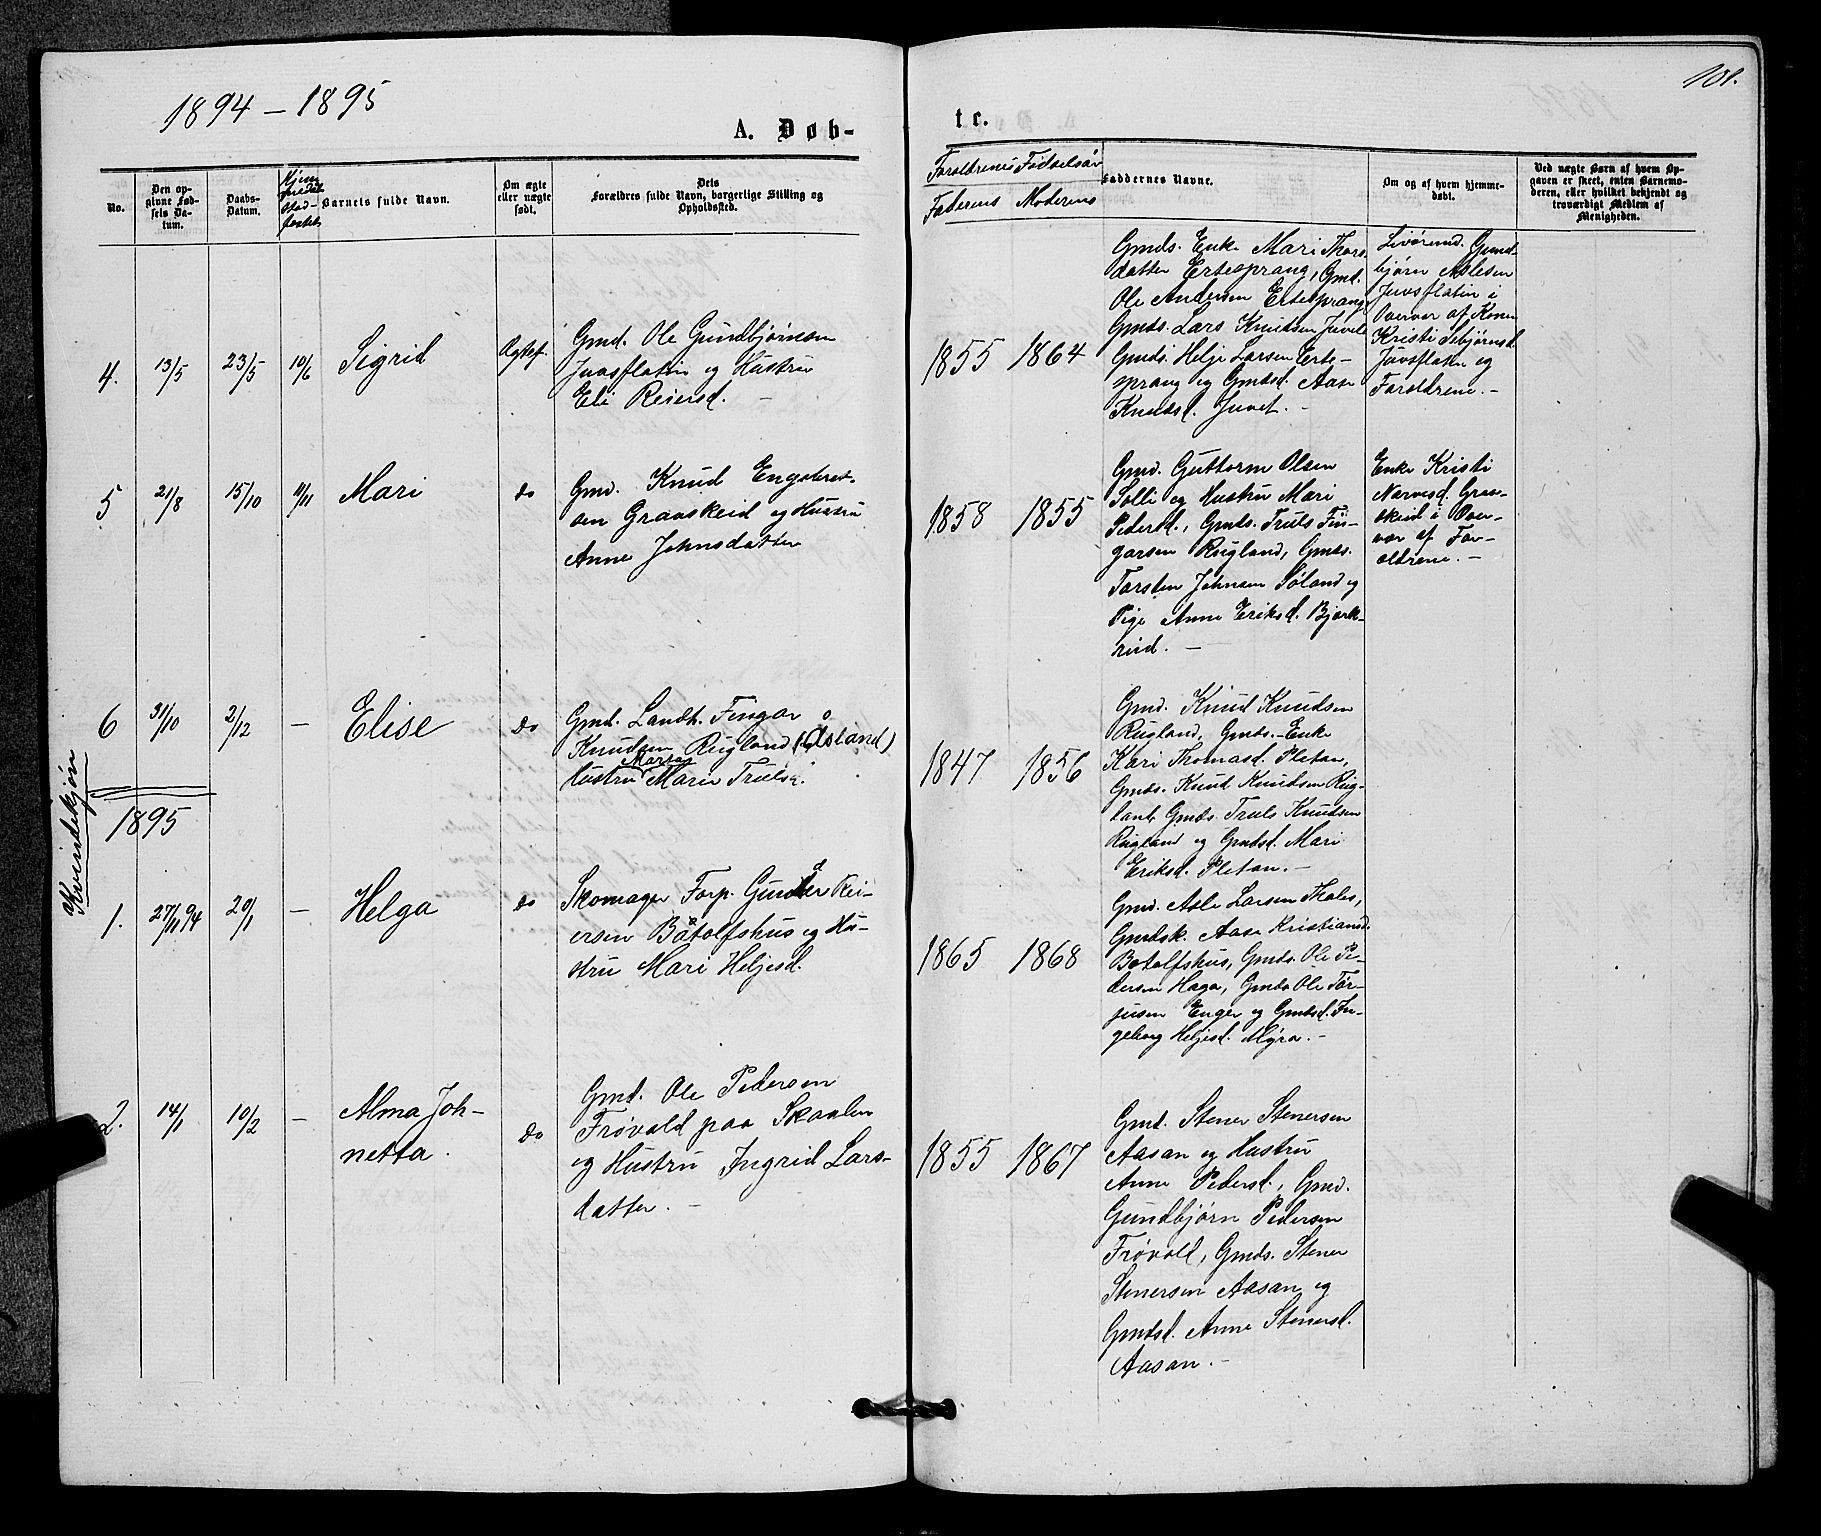 1894 – 1895
101.
A. Døb-
te.
No.
Den op-
givne Fød-
sels Da-
tum.
Daabs-
Datum.
Hjem-
medøb
stad-
fæstet
Barnets fulde Navn.
Om ægte
eller uægte
født.
Dets
Forældres fulde Navn, borgerlige Stilling og
Opholdssted.
Forældrenes Fødselsår
Faderens Moderens
Faddernes Navne.
Om og af hvem hjemme-
døbt.
Ved uægte Barn af hvem Op-
gaven er skeet, enten Barnemo-
deren, eller hvilket bekjendt og
troværdigt Medlem af
Menigheden.
4.
13/5
23/5
10/6
Sigrid
Ægtef.
Gmd. Ole Gundbjørnsen
Juvsflatin og Hustru
Eli Reiersd. –
1855
1864
Gmds. Enke Mari Thors-
datter Ertesprang, Gmd.
Ole Andersen Ertesprang
Gmds. Lars Knudsen Juvet
Gmds. Helje Larsen Erte-
sprang og Gmdsd. Aase
Knudsd. Juvet. –
Livørmd. Gund-
bjørn Aslesen
Juvsflatin i
Overvær af Konen
Kristi Sebjørnsd.
Juvsflaten og
Forældrene. –
5
21/8
15/10
11/11
Mari
do
Gmd. Knud Engebret-
sen Gravskeid og Hustru
Anne Johnsdatter
1858
1855
Gmd. Guttorm Olsen
Solli og Hustru Mari
Pedersd., Gmds. Truls Fin-
garsen Rugland, Gmds.
Torsten Johnsen Søland og
Pige Anne Eriksd. Bjørk-
rud. –
Enke Kristi
Narvesd. Grav-
skeid i Over-
vær af For-
ældrene. –
6
31/10
2/12
–
Elise
do
Gmd. Landh. Fingar
Knudsen Rugland (Åsland) og
Hustru Marie Trulsd.
Marta
1847
1856
Gmd. Knud Knudsen
Rugland, Gmds. Enke
Kari Thomasd. Pletan,
Gmds. Knud Knudsen Rug-
land, Gmds. Truls Knudsen
Rugland og Gmdsd. Mari
Eriksd. Pletan. –
af Kvindekjøn
1895
1.
27/11 94
20/1
–
Helga
do
Skomager Forp. Gunder Rei-
ersen Båtolfshus og Hu-
stru Mari Heljesd.
1865
1868
Gmd. Asle Larsen Tholes,
Gmdsk. Aase Kristiansd.
Botolfshus, Gmds. Ole Pe-
dersen Haga, Gmds Ole Tor-
jusen Enger og Gmdsd. In-
geborg Heljesd. Myra. –
2.
14/1
10/2
–
Alma Joh-
netta.
do
Gmd. Ole Pedersen
Frøvold paa Skaalen
og Hustru Ingrid Lars-
datter. –
1855
1867
Gmd. Stener Stenersen
Aasan og Hustru
Anne Pedersd., Gmd.
Gundbjørn Pedersen
Frøvold, Gmds. Stener
Stenersen Aasan og
Gmdsd. Anne Stenersd.
Aasan. –